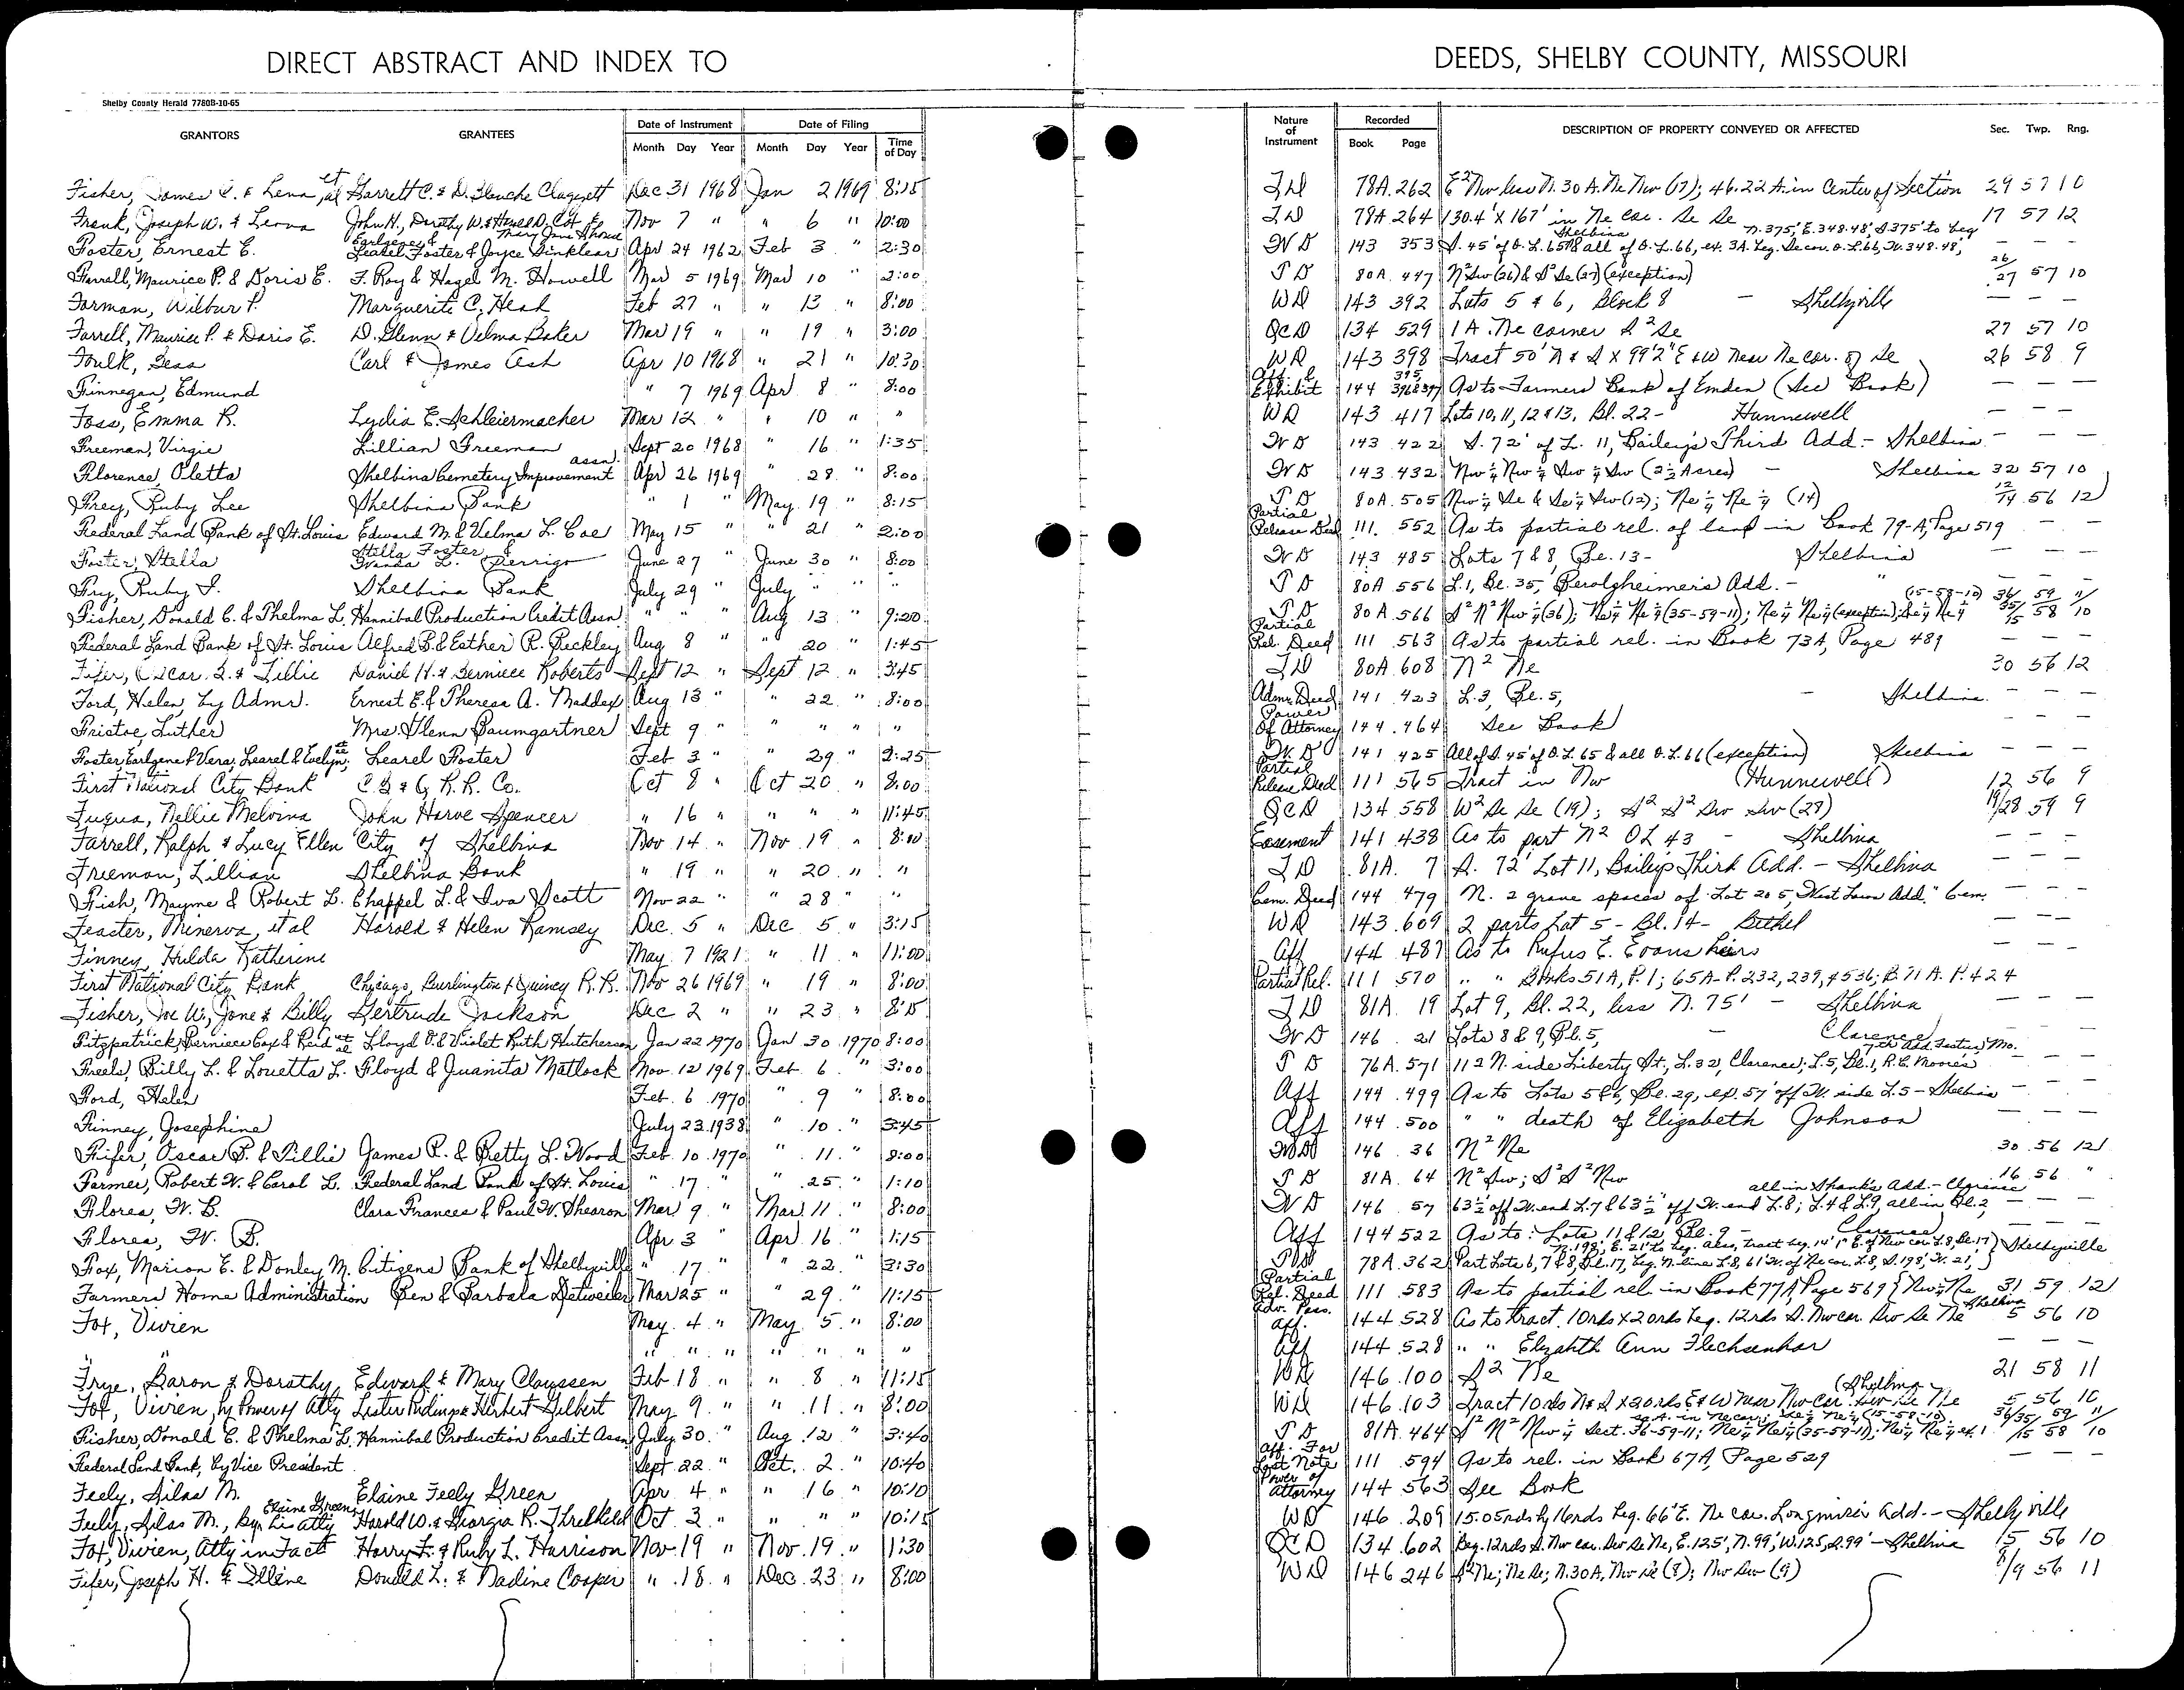 DIRECT ABSTRACT AND INDEX TO
DEEDS, SHELBY COUNTY, MISSOURI
Shelby County Herald 7780B-10-65
GRANTORS GRANTEES Date of Instrument Month Day Year Date of Filing Month Day Year Time of Day Nature of Instrument Recorded Book Page DESCRIPTION OF PROPERTY CONVEYED OR AFFECTED Sec. Twp. Rng.
Fisher, James & Lena, et al Garrett C. & D. Blanche Claggett Dec 31 1968 Jan 2 1969 8:15 78A 262 E² Nw less N. 30 A. Ne Nw (17); 46.22 A. in Center of Section 29 57 10
Frank, Joseph W. & Leona John H., Dorothy W. & Nov 7 " " 6 " 10:00 79A 264 130.4' X 167' in Ne cor. Se Se 17 57 12
Foster, Ernest E. Earlgene & Learel Foster & Joyce Apr 24 1962 Feb 3 " 2:30 WD 143 353 S. 45' of O.L. 65 & all of O.L. 66, ex. 3A. beg. Se cor. O.L. 66, W. 348.48', N. 375', E. 348.48', S 375' to beg Shelbina — — —
Farrell, Maurice P. & Doris E. F. Roy & Hazel M. Howell Mar 5 1969 Mar 10 " 2:00 TD 80A 447 N² Sw (26) & S² Se (27) (exception) 26/27 57 10
Forman, Wilbur P. Marguerite C. Heah Feb 27 " " 13 " 8:00 WD 143 392 Lots 5 & 6, Block 8 — Shelbyville — — —
Farrell, Maurice P. & Doris E. D. Glenn & Velma Baker Mar 19 " " 19 " 3:00 QCD 134 529 1 A. Ne corner S² Se 27 57 10
Foulk, Bess Carl & James Ash Apr 10 1968 " 21 " 10:30 WD 143 398 Tract 50' N & S X 99'2" E & W near Ne cor. of Se 26 58 9
Finnegan, Edmund " 7 1969 Apr 8 " 8:00 Aff. & Exhibit 144 395, 396 & 397 As to Farmers Bank of Emden (See Book) — — —
Foss, Emma R. Lydia E. Schleiermacher Mar 12 " " 10 " " WD 143 417 Lots 10, 11, 12 & 13, Bl. 22 - Hunnewell — — —
Freeman, Virgie Lillian Freeman Sept 20 1968 " 16 " 1:35 WD 143 422 S. 72' of L. 11, Bailey's Third Add. - Shelbina — — —
Florence, Oletta Shelbina Cemetery Improvement assn. Apr 26 1969 " 28 " 8:00 WD 143 432 Nw¼ Nw¼ Sw¼ Sw (2½ Acres) — Shelbina 32 57 10
Frey, Ruby Lee Shelbina Bank " 1 " May 19 " 8:15 TD 80A 505 Nw¼ Se & Se¼ Sw (12); Ne¼ Ne¼ (14) 12/14 56 12
Federal Land Bank of St. Louis Edward M. & Velma L. Coe May 15 " " 21 " 2:00 Partial Release Deed 111 552 As to partial rel. of land in Book 79-A, Page 519 — —
Foster, Stella Stella Foster & Wanda L. Perrigo June 27 " June 30 " 8:00 WD 143 485 Lots 7 & 8, Bl. 13 - Shelbina — — —
Fry, Ruby F. Shelbina Bank July 29 " July " " " TD 80A 556 L. 1, Bl. 35, Berolzheimer's Add. - " — — —
Fisher, Donald C. & Thelma L. Hannibal Production Credit Assn " " " Aug 13 " 9:20 TD 80A 566 S² N² Nw¼ (36); Ne¼ Ne¼ (35-59-11); Ne¼ Ne¼ (exception), Se¼ Ne¼ (15-58-10) 36/35/15 59/58 11/10
Federal Land Bank of St. Louis Alfred B. & Esther R. Beckley Aug 8 " " 20 " 1:45 Partial Rel. Deed 111 563 As to partial rel. in Book 73A, Page 489 — — —
Fifer, Oscar & Lillie Daniel H. & Berniece Roberts Sept 12 " Sept 12 " 3:45 TD 80A 608 N² Ne 30 56 12
Ford, Helen, by Admr. Ernest E. & Theresa A. Maddex Aug 13 " " 22 " 8:00 Admr. Deed 141 423 L. 3, Bl. 5, — Shelbina — — —
Fristoe Luther Mrs. Glenn Baumgartner Sept 9 " " " " " Power Of Attorney 144 464 See Book — — —
Foster, Earlgene & Vera; Learel & Evelyn; et al Learel Foster Feb 3 " " 29 " 2:25 W.D 141 425 All of S. 45' of O.L. 65 & all O.L. 66 (exception) Shelbina — — —
First National City Bank C.B. & Q. R.R. Co. Oct 8 " Oct 20 " 8:00 Partial Release Deed 111 565 Tract in Nw (Hunnewell) 12 56 9
Fuqua, Nellie Melvina John Harve Spencer " 16 " " " " 11:45 QCD 134 558 W² Se Se (19); S² S² Sw Sw (28) 19/28 59 9
Farrell, Ralph & Lucy Ellen City of Shelbina Nov 14 " Nov 19 " 8:00 Easement 141 438 As to part N² OL 43 - Shelbina — — —
Freeman, Lillian Shelbina Bank " 19 " " 20 " " TD 81A 7 S. 72' Lot 11, Bailey's Third Add. - Shelbina — — —
Fish, Mayme & Robert L. Chappel L. & Iva Scott Nov 22 " " 28 " " Cem. Deed 144 479 N. 2 grave spaces of Lot 205, West Lawn Add." Cem. — — —
Feaster, Minerva, et al Harold & Helen Ramsey Dec. 5 " Dec 5 " 3:15 WD 143 609 2 parts Lot 5 - Bl. 14 - Bethel — — —
Finney, Hulda Katherine May 7 1921 " 11 " 11:00 Aff 144 487 As to Rufus E. Evans heirs — — —
First National City Bank Chicago, Burlington & Quincy R.R. Nov 26 1969 " 19 " 8:00 Partial Rel. 111 570 " " Books 51A, P. 1; 65A-P. 232, 239, & 536; B. 71 A. P. 424
Fisher, Joe W., Jane & Billy Gertrude Jackson Dec 2 " " 23 " 8:15 TD 81A 19 Lot 9, Bl. 22, less N. 75' - Shelbina — — —
Fitzpatrick, Berniece Cox & Reid et al Lloyd O. & Violet Ruth Hutcherson Jan 22 1970 Jan 30 1970 8:00 WD 146 21 Lots 8 & 9, Bl. 5, — Clarence — — —
Freels, Billy L. & Louetta L. Floyd & Juanita Matlock Nov. 12 1969 Feb 6 " 3:00 TD 76A 571 112 N. side Liberty St., L. 32, Clarence; L. 5, Bl. 1, R.C. Moore's 7th Add. Lentner, Mo.
Ford, Helen Feb. 6 1970 " 9 " 8:00 Aff 144 499 As to Lots 5 & 6, Bl. 29, ex. 57' off W. side L. 5 - Shelbina — — —
Finney, Josephine July 23 1938 " 10 " 3:45 Aff 144 500 " " death of Elizabeth Johnson
Fifer, Oscar & Lillie James R. & Betty L. Wood Feb. 10 1970 " 11 " 8:00 WD 146 36 N² Ne 30 56 12
Farmer, Robert W. & Carol L. Federal Land Bank of St. Louis " 17 " " 25 " 1:10 TD 81A 64 N² Sw; S² S² Nw 16 56 "
Florea, W. B. Clara Frances & Paul W. Shearon Mar 9 " Mar 11 " 8:00 WD 146 57 63½' off W. end L. 7 & 63½' off W. end L. 8; L. 4 & L. 9, all in Bl. 2, all in Shanks Add. - Clarence — — —
Florea, W. B. Apr 3 " Apr 16 " 1:15 Aff 144 522 As to: Lots 11 & 12, Bl. 9 - Clarence
Fox, Marion E. & Donley M. Citizens Bank of Shelbyville " 17 " " 22 " 3:30 78A 362 Part Lots 6, 7 & 8, Bl. 17, beg. N. line L. 8, 61' W. of Ne cor. L. 8, S. 198', W. 21', N. 198', E. 21' to beg. Also, tract beg. 14' 1" E. of Nw cor. L. 8, Bl. 17 } Shelbyville
Farmers Home Administration Ben & Barbara Detweiler Mar 25 " " 29 " 11:15 Partial Rel. Deed 111 583 As to partial rel. in Book 77A, Page 569 { Nw¼ Ne 31 59 12
Fox, Vivien May 4 " May 5 " 8:00 Adv. Poss. Aff. 144 528 As to tract 10rds X 20rds beg. 12rds S. Nw cor. Sw Se Ne Shelbina 5 56 10
" " " " " " " " Aff 144 528 " " Elizabth Ann Flechsenhar — — —
Frye, Baron & Dorothy Edward & Mary Claussen Feb 18 " " 8 " 11:15 WD 146 100 S² Ne 21 58 11
Fox, Vivien, by Power of Atty Lester Pudinpa & Herbert Gilbert May 9 " " 11 " 8:00 WD 146 103 Tract 10 rds N & S X 20 rds E & W near Nw cor. Sw Se Ne (Shelbina 5 56 10
Fisher, Donald C. & Thelma L. Hannibal Production Credit Assn July 30 " Aug 12 " 3:40 TD 81A 464 S² N² Nw¼ Sect. 36-59-11; Ne¼ Ne¼ (35-59-11); Ne¼ Ne¼ ex. 1 A. in Ne cor.; Se¼ Ne¼ (15-58-10) 36/35/15 59/58 11/10
Federal Land Bank, by Vice President Sept 22 " Oct. 2 " 10:40 Aff. For Lost Note 111 594 As to rel. in Book 67A, Page 529 — — —
Feely, Silas M. Elaine Feely Green Apr 4 " " 16 " 10:10 Power of Attorney 144 563 See Book
Feely, Silas M., by his Atty Elaine Green Harold W. & Georgia R. Threlkeld Oct 3 " " " " 10:15 WD 146 209 15.05rds by 16rds beg. 66' E. Ne cor. Longmire's Add. - Shelbyville
Fox, Vivien, Atty in Fact Harry F. & Ruby L. Harrison Nov 19 " Nov. 19 " 1:30 QCD 134 602 Beg. 12rds S. Nw cor. Sw Se Ne, E. 125', N. 99', W. 125, S. 99' - Shelbina 5 56 10
Fifer, Joseph H. & Illene Donald L. & Nadine Cooper " 18 " Dec. 23 " 8:00 WD 146 246 S² Ne; Ne Se; N. 30 A. Nw Se (8); Nw Sw (9) 8/9 56 11